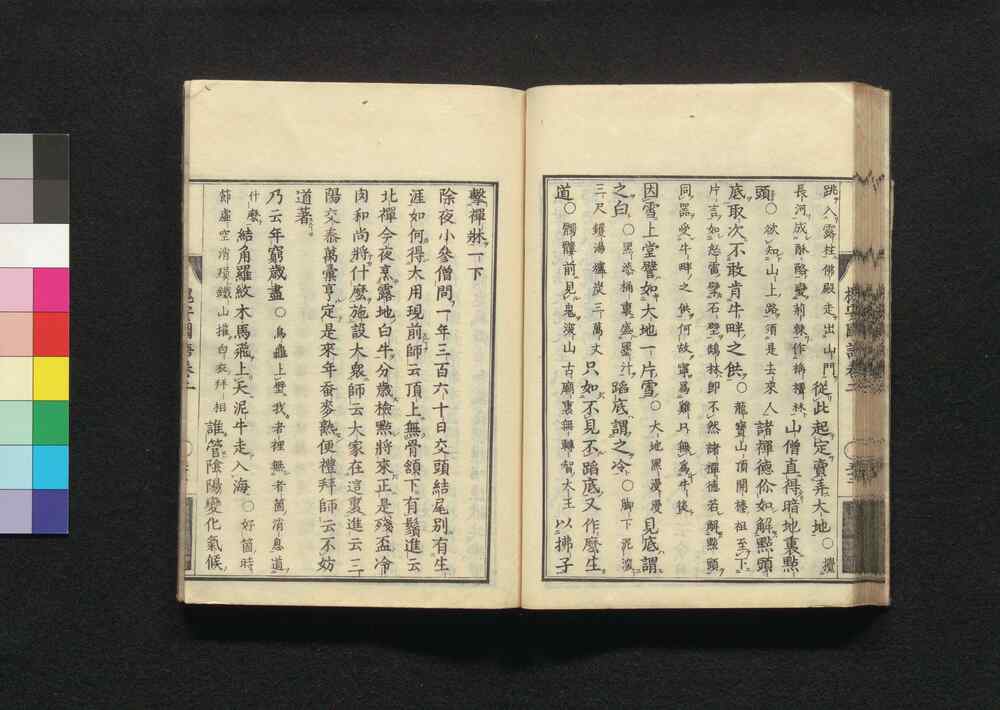 跳入露柱佛殿走出山門從此起定賣弄大地○攪
長河成酥酪變荊棘作栴檀林山僧直得暗地裏點
頭○欲知山上路須是去來人諸禪德你如解點頭
底取次不敢肯牛畔之供○龍寶山頂開褥祖至下
片言如怒雷擘石壁鶴林即不然諸禪德若解點頭
同器受牛畔之供何故寧爲雞口無爲牛後
因雪上堂譬如大地一片雪○大地黑漫漫見底謂
之白○黑漆桶裏盛墨汁蹈底謂之冷○脚下泥深
三尺鑊湯爐炭三萬丈只如不見不蹈底又作麼生
道○髑髏前見鬼演山古廟裏無轉智大王以拂子
擊禪牀一下
除夜小參僧問一年三百六十日交頭結尾別有生
涯如何得大用現前師云頂上無骨頷下有鬚進云
北禪今夜烹露地白牛分歲檢點將來正是殘盃冷
肉和尚將什麼施設大衆師云大家在這裏進云三
陽交泰萬彙亨定是來年蚕麥熟便禮拜師云不妨
道著
乃云年窮歲盡○烏龜上壁我者裡無者箇消息道
什麼結角羅紋木馬飛上天泥牛走入海○好箇時
節虛空消殞鐵山摧白衣拜相誰管陰陽變化氣候